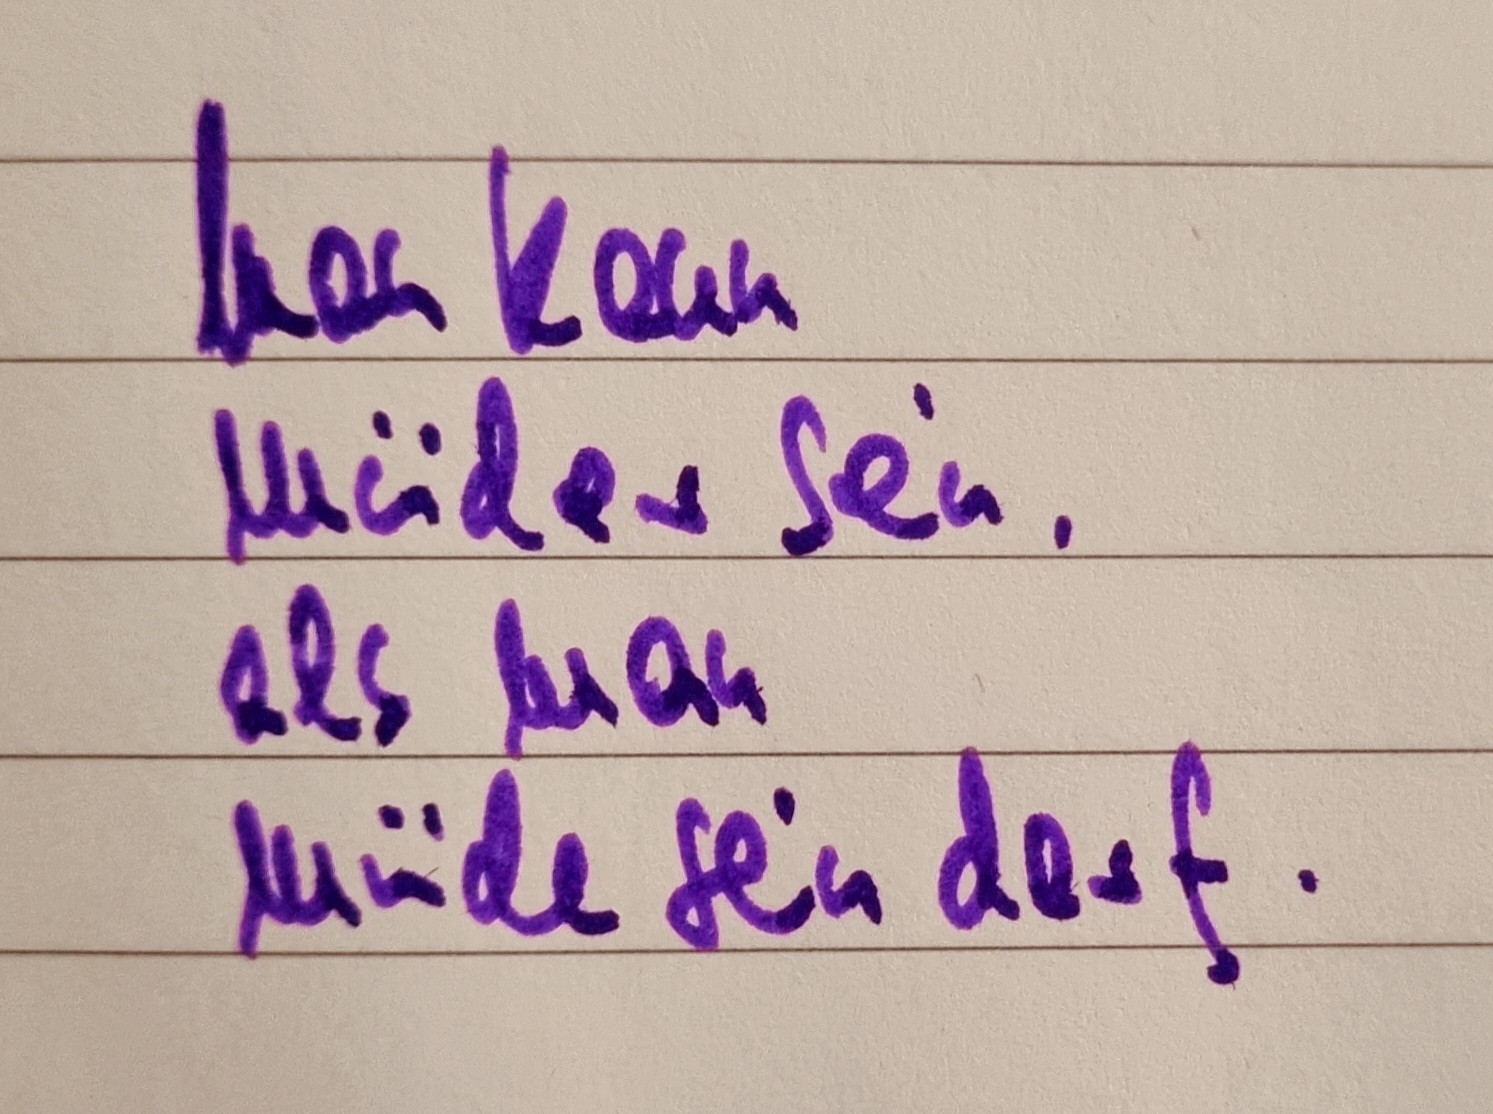 man kann
müder sein,
als man
müde sein darf.